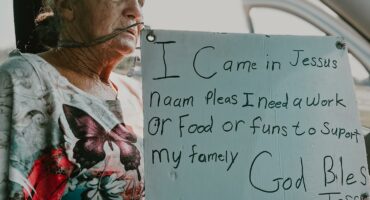 I Came in Jessus
naam Pleas I need a work
Or Food or funs to Suport
my famely God Bles